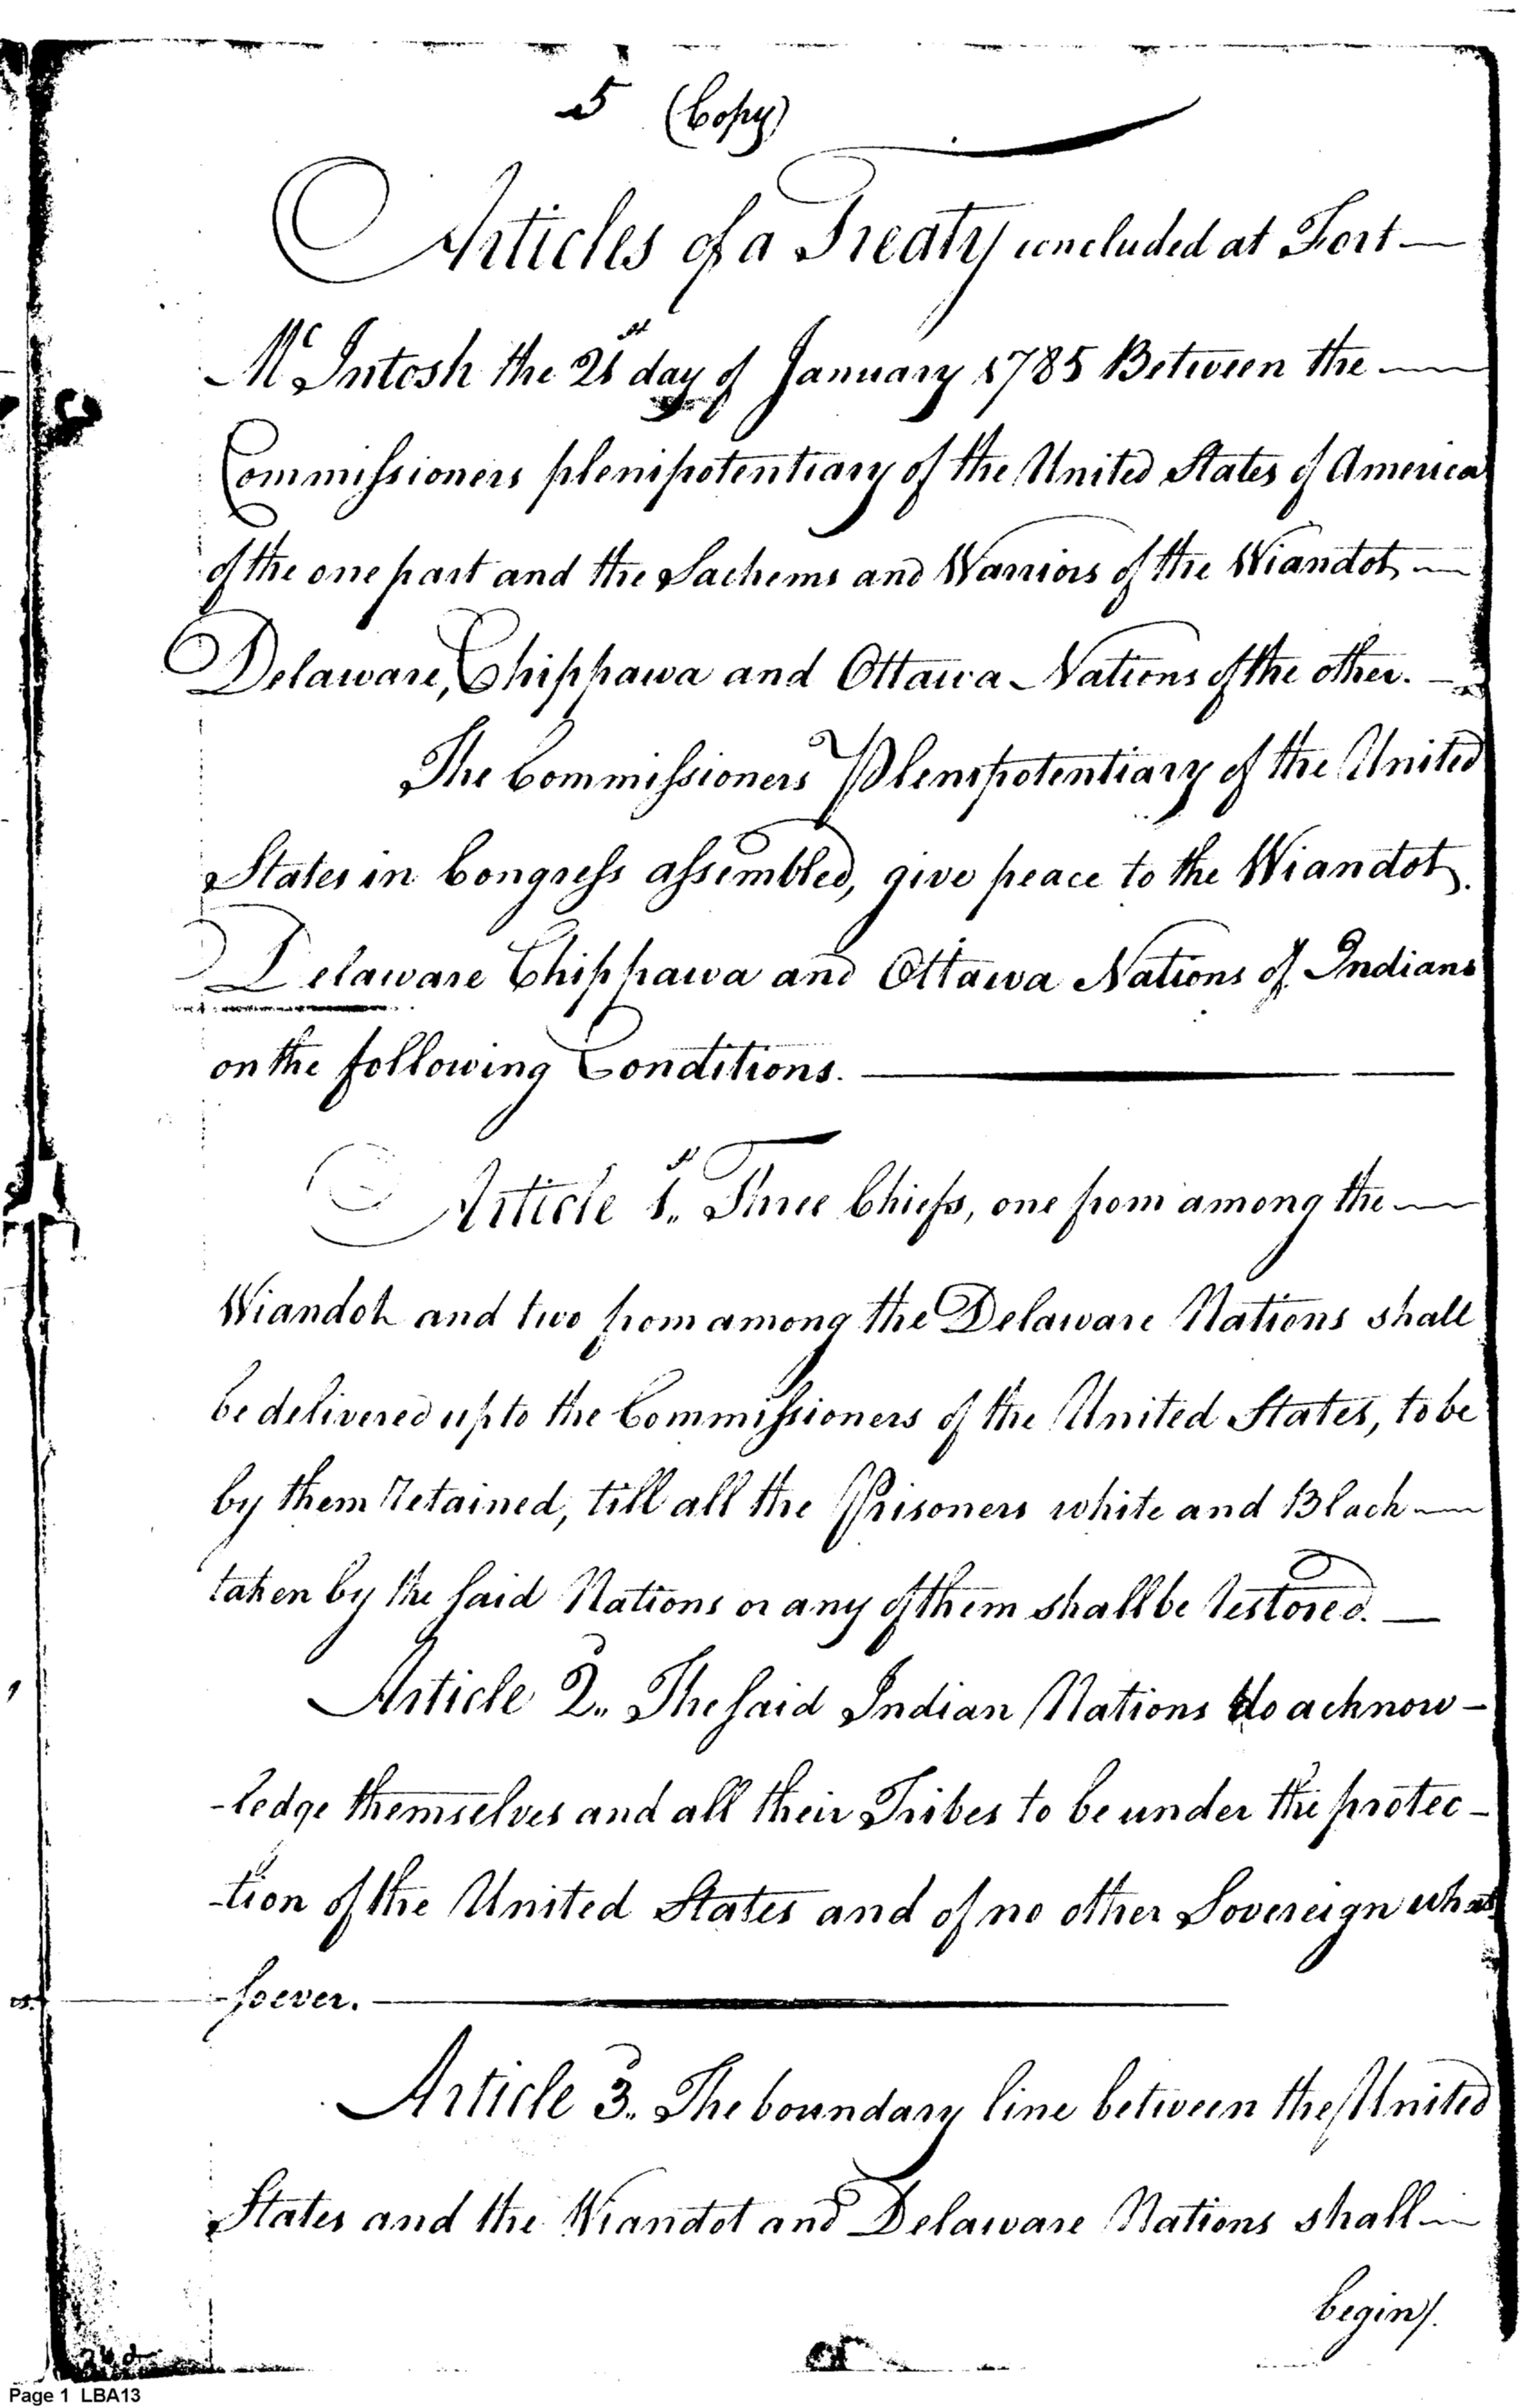 5 (Copy)
Articles of a Treaty concluded at Fort
Mc Intosh the 21st day of January 1785 Between the
Commissioners plenipotentiary of the United States of America
of the one part and the Sachems and Warriors of the Wiandot,
Delaware, Chippawa and Ottawa Nations of the other.
The Commissioners Plenipotentiary of the United
States in Congress assembled, give peace to the Wiandot,
Delaware Chippawa and Ottawa Nations of Indians
on the following Conditions.
Article 1st. Three Chiefs, one from among the
Wiandot and two from among the Delaware Nations shall
be delivered up to the Commissioners of the United States, to be
by them retained, till all the Prisoners white and Black
taken by the said Nations or any of them shall be restored.
Article 2. The said Indian Nations do acknow-
-ledge themselves and all their Tribes to be under the protec-
-tion of the United States and of no other Sovereign what
-soever.
Article 3. The boundary line between the United
States and the Wiandot and Delaware Nations shall
begin/.
Page 1 LBA13